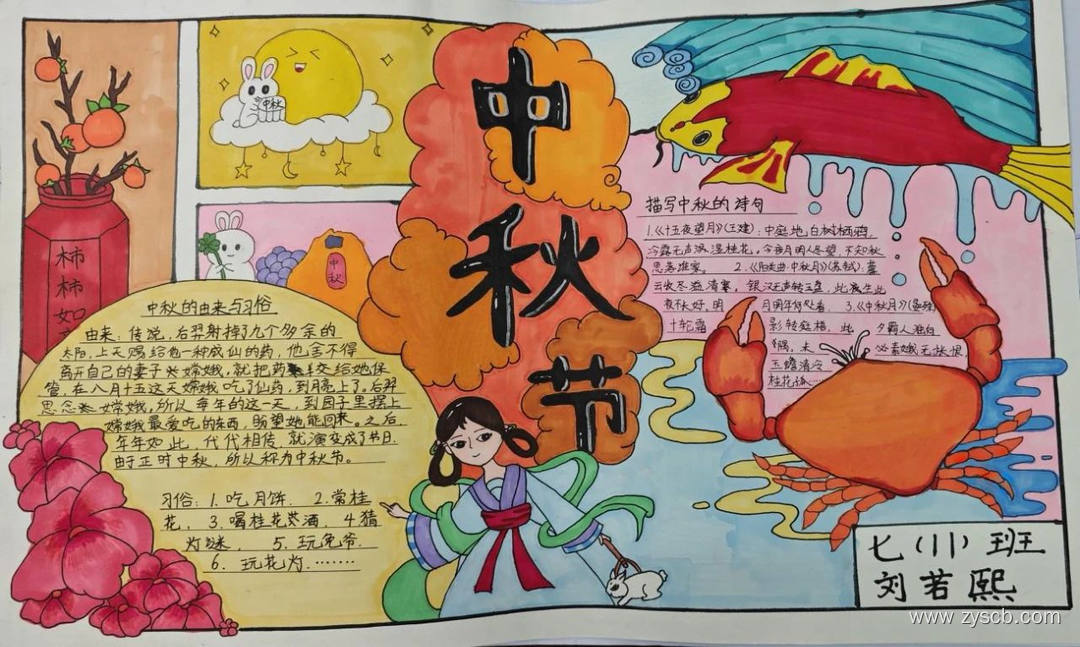 中秋节
中秋
中秋
柿
柿
如
中秋的由来与习俗
由来：传说，后羿射掉了九个多余的
太阳，上天赐给他一种成仙的药，他舍不得
离开自己的妻子嫦娥，就把药交给她保
管，在八月十五这天嫦娥吃了仙药，到月亮上了。后羿
思念嫦娥，所以每年的这一天，到园子里摆上
嫦娥最爱吃的东西，盼望她能回来。之后，
年年如此，代代相传，就演变成了节日.
由于正时中秋，所以称为中秋节。
习俗：1.吃月饼. 2.赏桂
花， 3.喝桂花酒， 4.猜
灯谜， 5. 玩兔爷.
6. 玩花灯.……
描写中秋的诗句
1.《十五夜望月》（王建）：中庭地白树栖鸦，
冷露无声湿桂花，今夜月明人尽望，不知秋
思落谁家。 2.《阳关曲·中秋月》（苏轼）：暮
云收尽溢清寒，银汉无声转玉盘，此生此
夜不长好，明月明年何处看。 3.《中秋月》（晏殊）
十轮霜影转庭梧，此夕羁人独向
隅，未必素娥无怅恨，
玉蟾清冷
桂花
七（11）班
刘若熙
www.zyscb.com